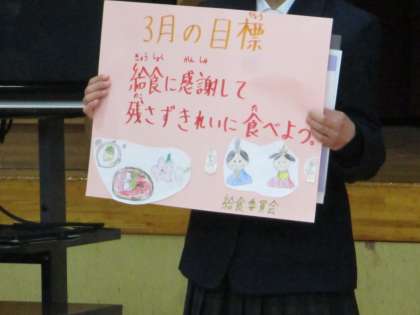 3月の目標
給食に感謝して
残さずきれいに食べよう。
給食委員会